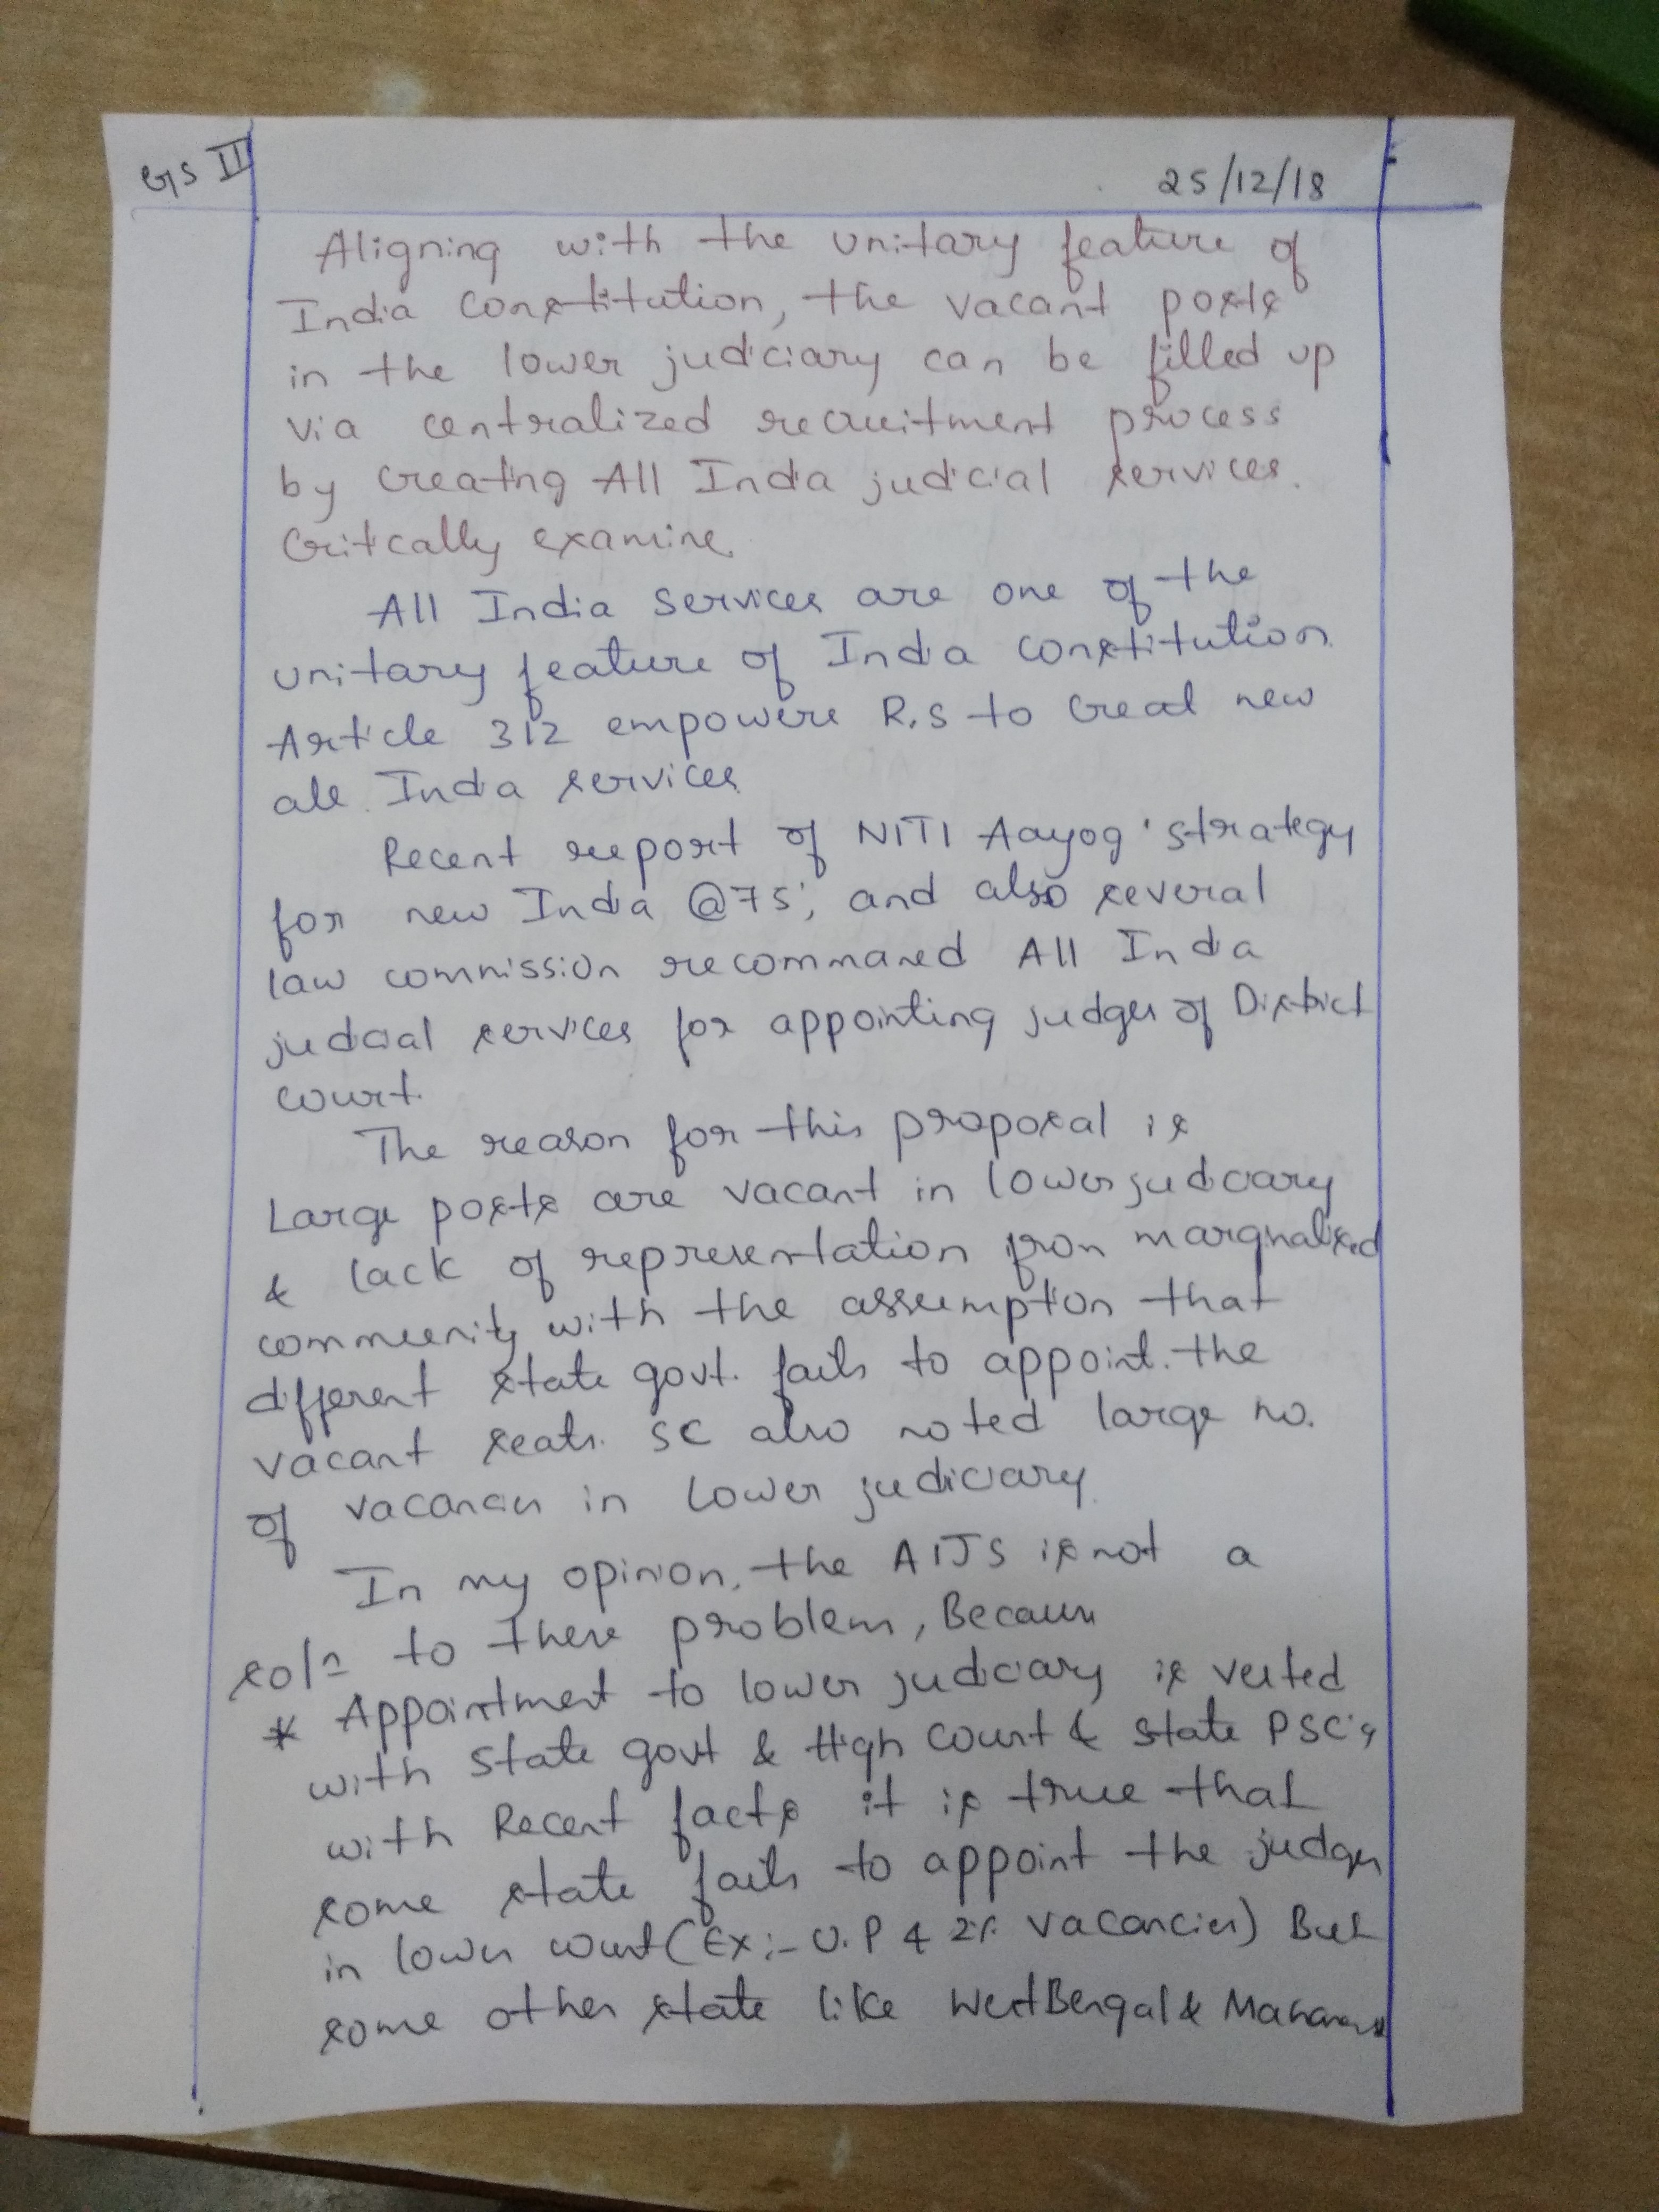 GS II
25/12/18
Aligning with the unitary feature of
India constitution, the vacant posts
in the lower judiciary can be filled up
via centralized recruitment process
by creating All India judicial services.
Critcally examine.
All India services are one of the
unitary feature of India constitution.
Article 312 empowers R.S to creat new
all India services.
Recent report of NITI Aayog 'strategy
for new India @75', and also several
law commission recommaned All India
judicial services for appointing judges of District
court.
The reason for this proposal is
Large posts are vacant in lower judiciary
& lack of representation from marginalised
community with the assumption that
different state govt. fails to appoint the
vacant seats. SC also noted large no.
of vacancies in lower judiciary.
In my opinion, the AIJS is not a
soln to these problem, Because
* Appointment to lower judiciary is vested
with state govt & High Court & state PSC's
with Recent facts it is true that
some state fails to appoint the judges
in lower court (Ex:- U.P 42% vacancies) But
some other state like West Bengal &